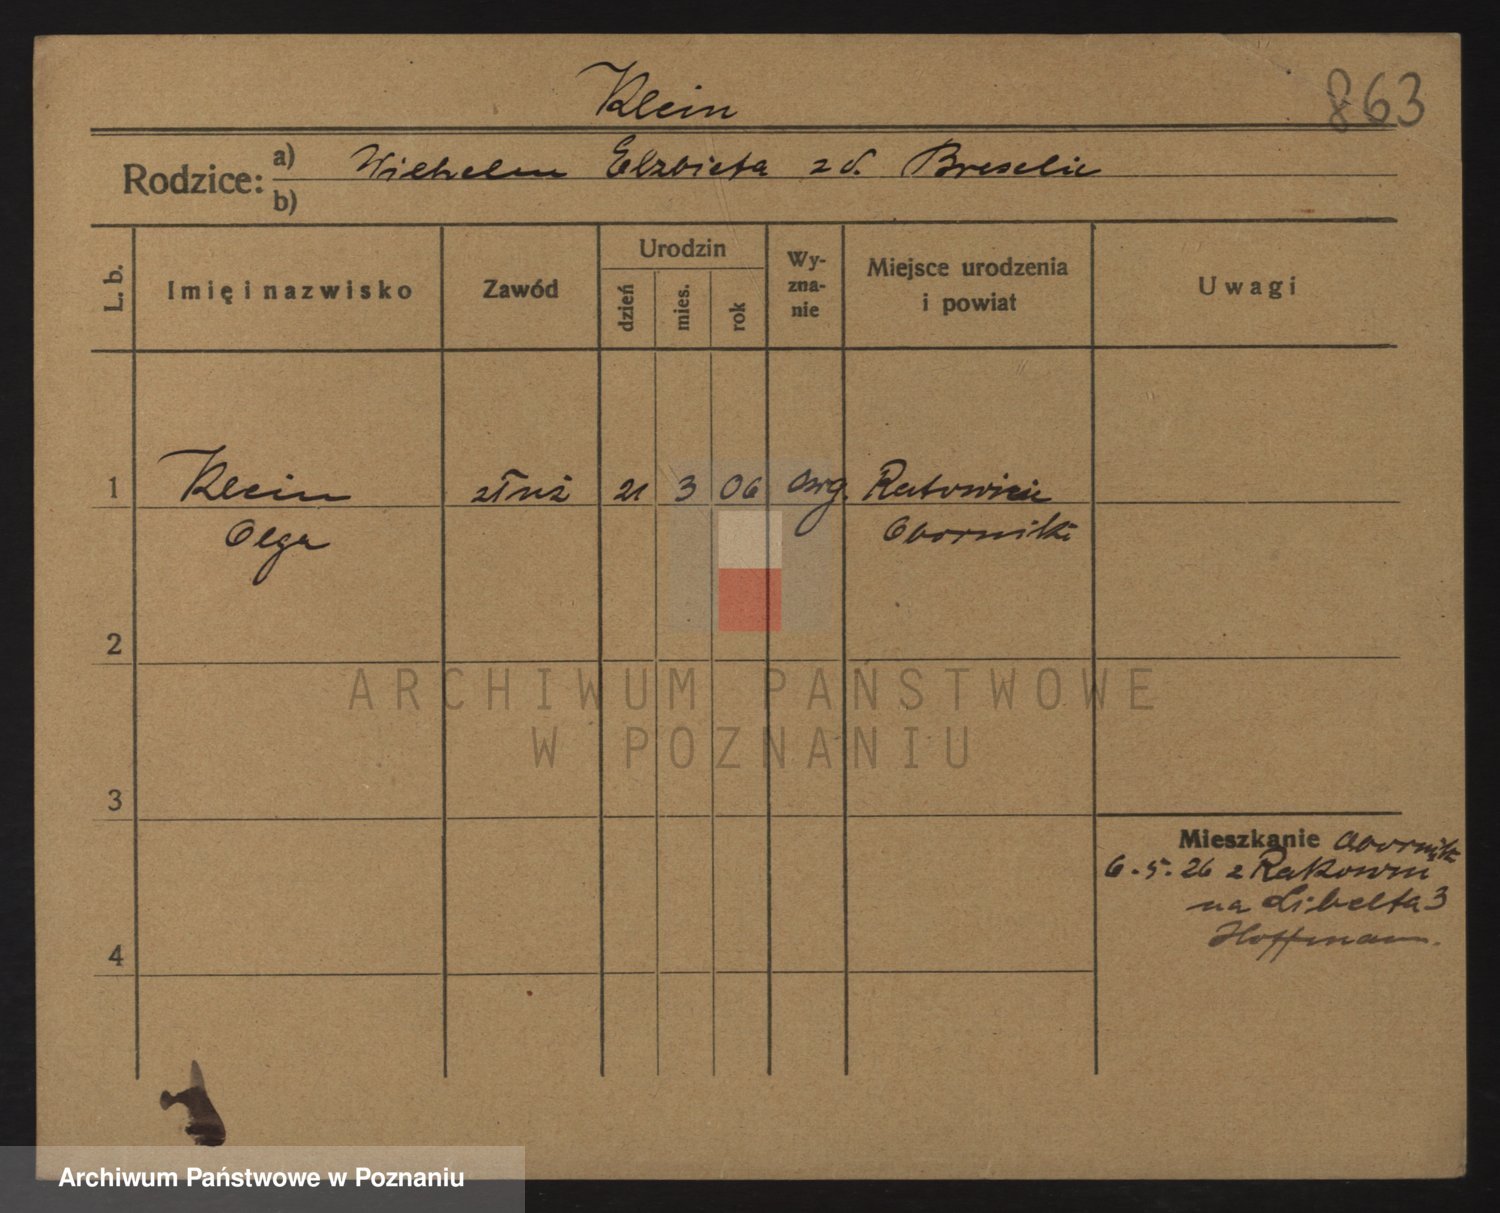 Klein
863
Rodzice: a) Wilhelm Elzbieta z d.
b)
L. b.
Imię i nazwisko
Zawód
Urodzin
dzień
mies.
rok
Wy-
zna-
nie
Miejsce urodzenia
i powiat
Uwagi
1 Klein 21 3 06 Ratowice
Olga Oborniki
2
ARCHIWUM PAŃSTWOWE
W POZNANIU
3
Mieszkanie Oborniki
6.5.26 z
na Libelta 3
Hoffmann.
4
Archiwum Państwowe w Poznaniu